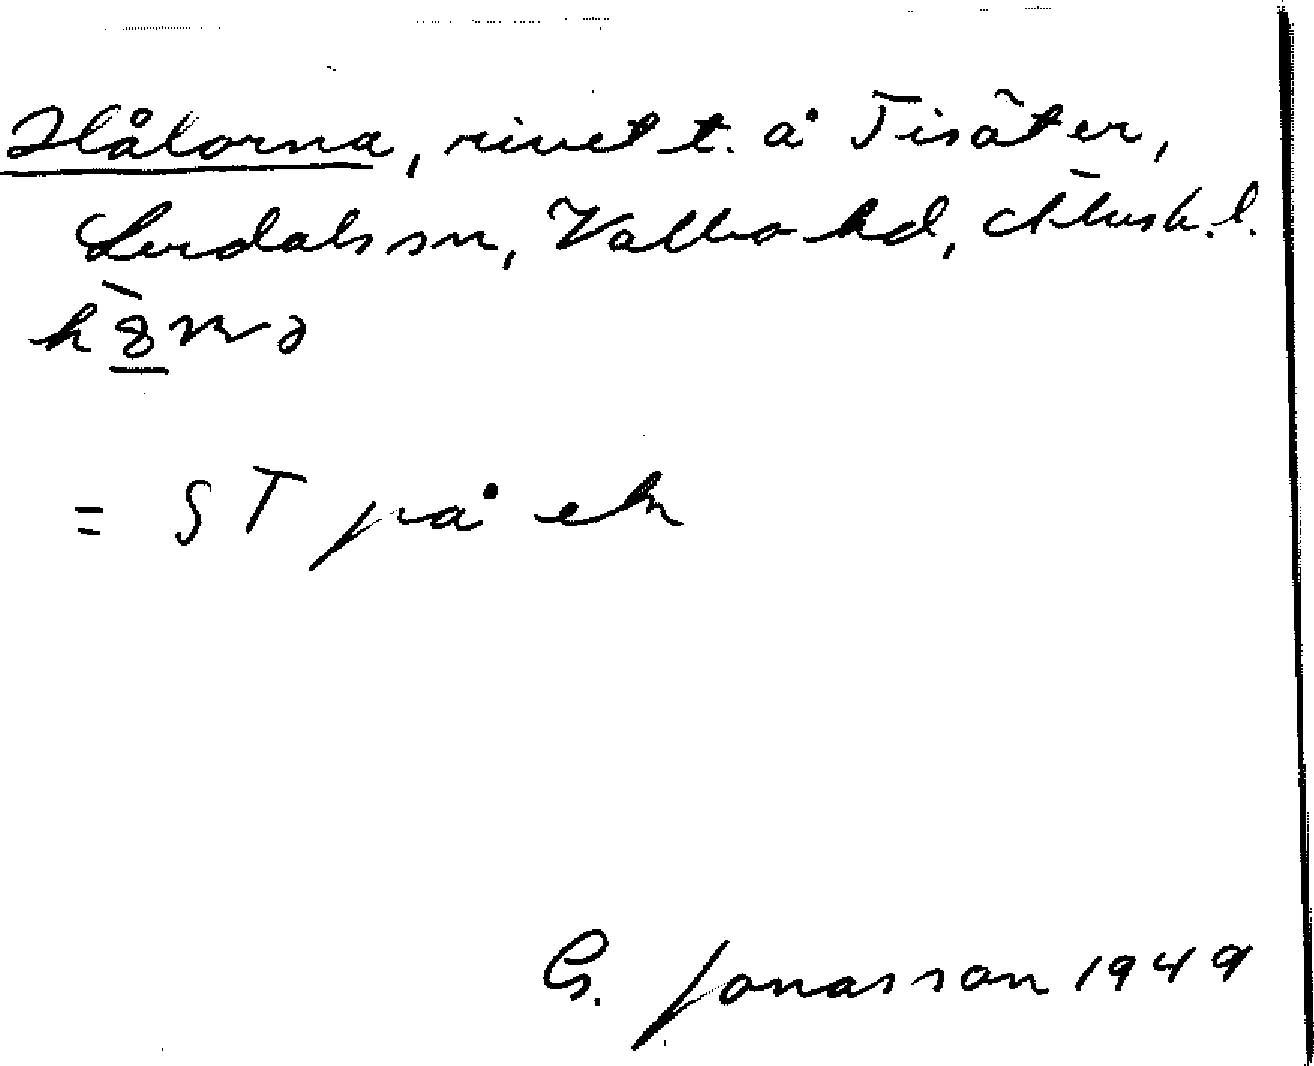 Hålorna, rivet t. å Tisäter,
Lerdals sn, Valbo hd, Älvsb. l.
= ST på ek
G. Jonasson 1949